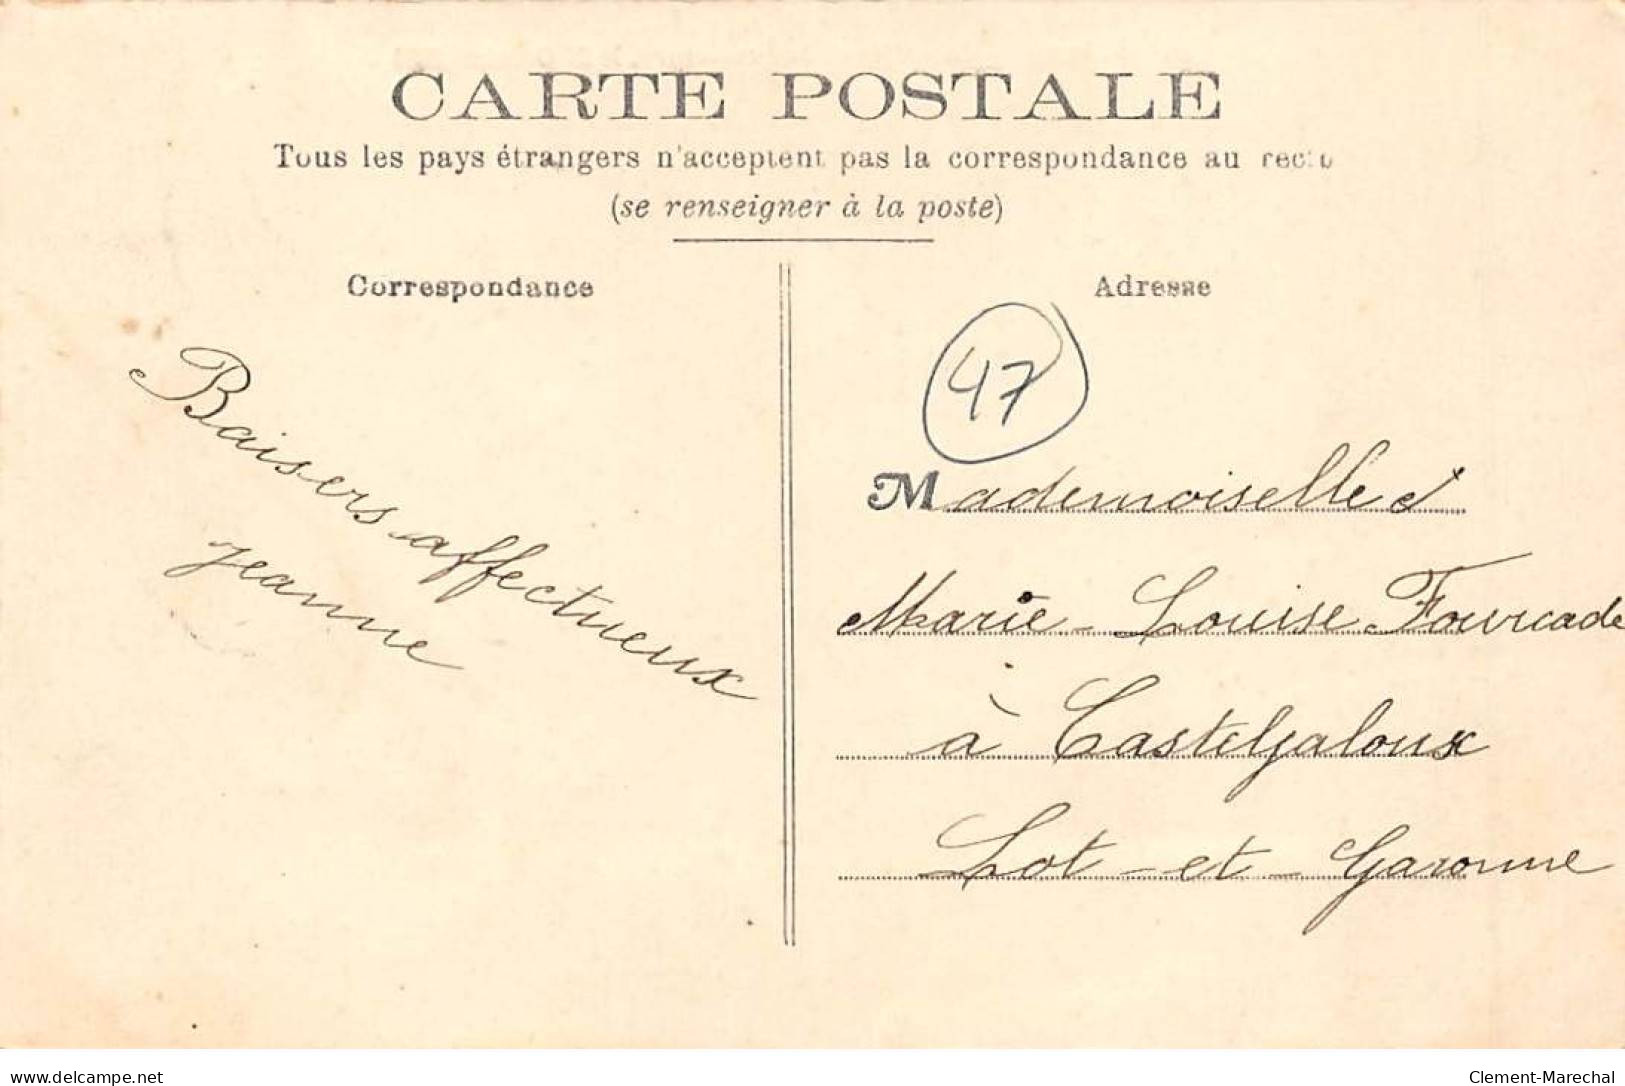 CARTE POSTALE
Tous les pays étrangers n'acceptent pas la correspondance au recto
(se renseigner à la poste)
Correspondance
Baisers affectueux
Jeanne
Adresse
47
Mademoiselle
Marie-Louise Fourcade
à Casteljaloux
Lot-et-Garonne
delcampe.net
Clement-Marechal